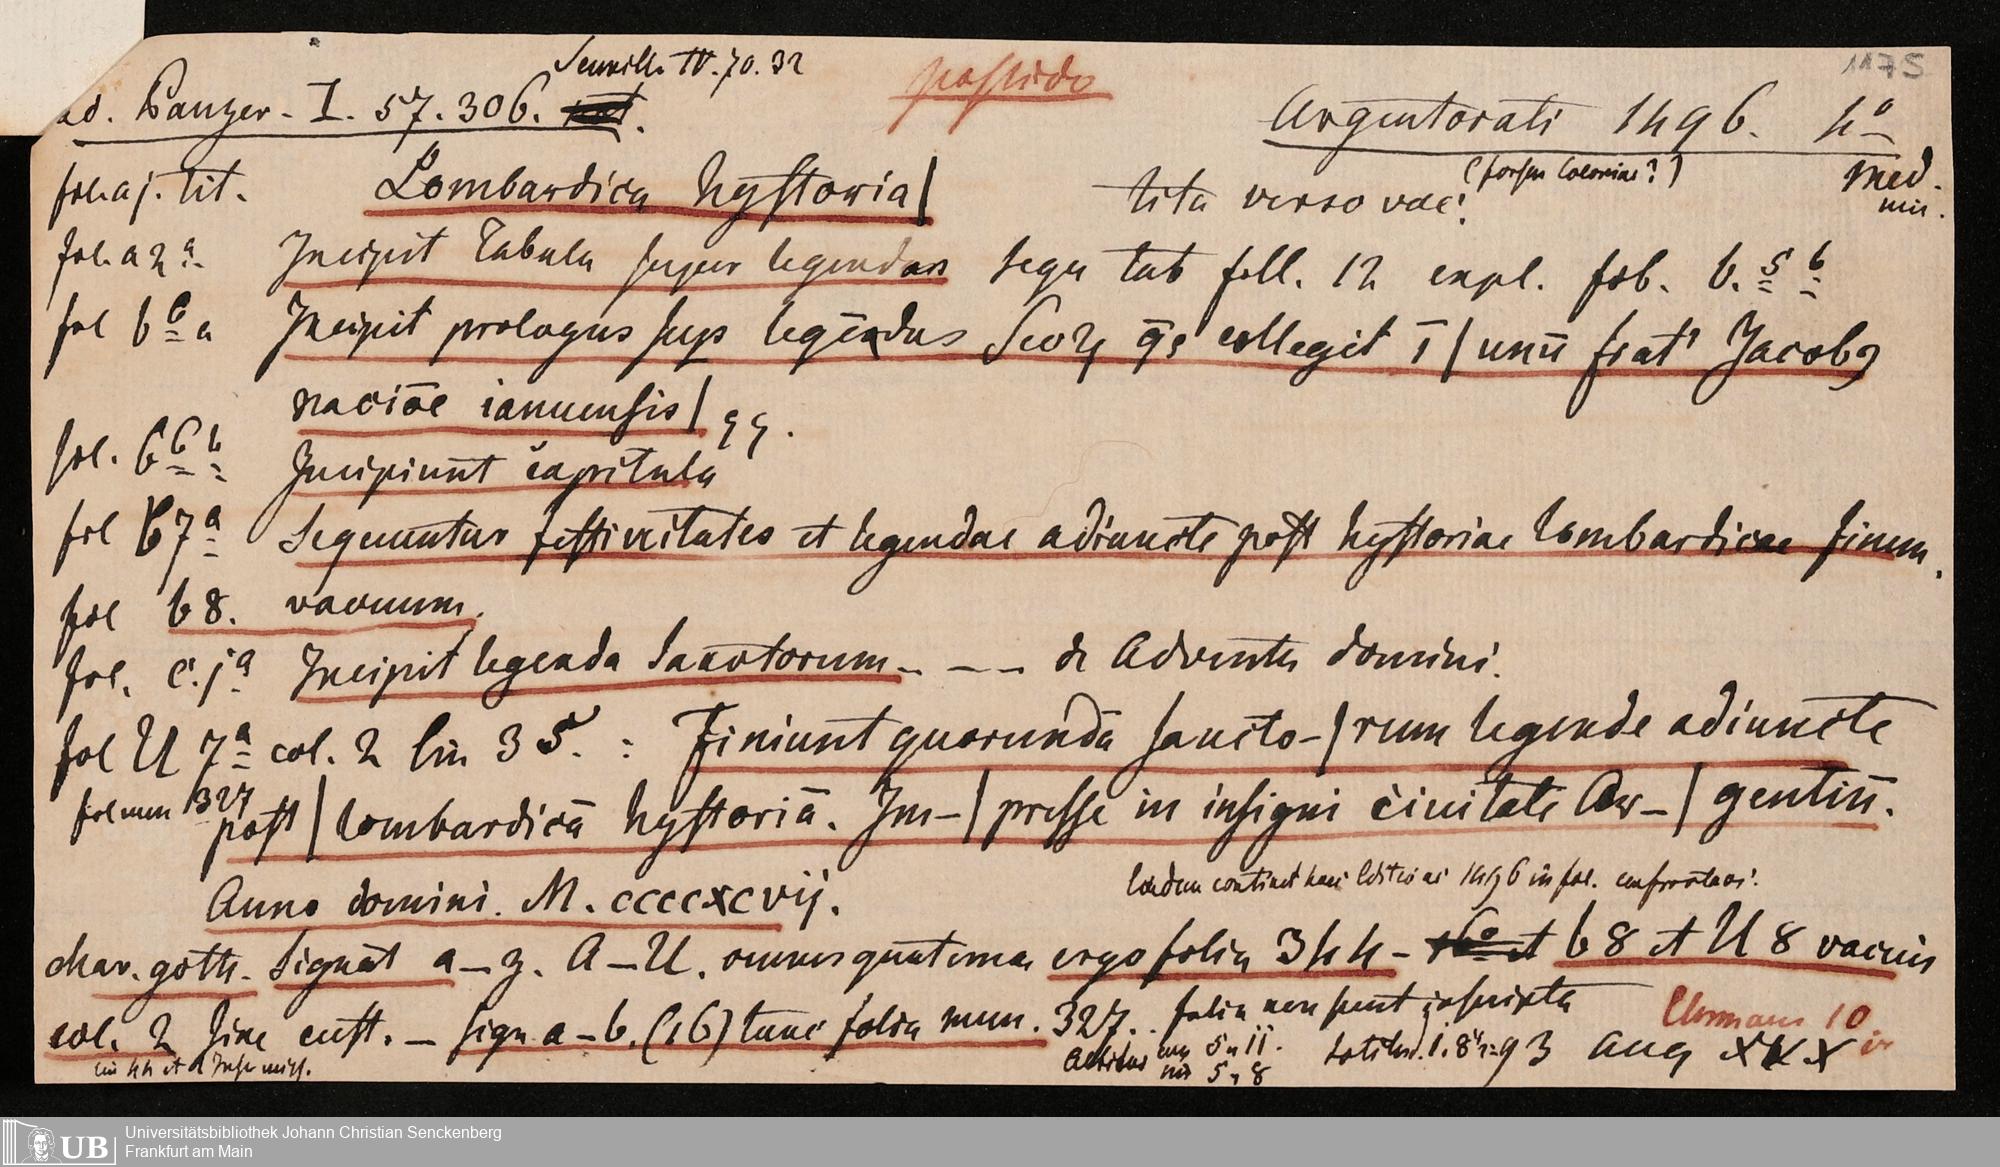 IV. 70. 32
1175
ad. Panzer - I. 57. 306.
possido
Argentorati 1496. 4º
med. min.
fol. a j. tit. Lombardica hystoria| tit. verso vac. (forsan Coloniae?)
fol. a 2 a. Incipit Tabula super legendas sequ tab foll. 12 expl. fol. b. 5 b
fol b 6 a Incipit prologus sup legēdas Scoꝝ q̄s collegit ī | unū frat' Jacobꝯ
naciōe ianuensis|
fol. b 6 b Incipiunt capitula
fol b 7 a Sequuntur festivitates et legendae adiuncte post hystoriae lombardicae finem.
fol b 8. vacuum.
fol. c. j a Incipit legenda Sanctorum - - - de Adventu domini.
fol U 7 a col. 2 lin 35. : Finiunt quorundā sancto-|rum legende adiuncte
fol num 327 post | lombardicā hystoriā. Im-| presse in insigni civitate Ar-| gentiñ.
Anno domini. M. ccccxcvij.
Eadem continet haec Editio ac 1496 in fol.
char. goth. Signat a-z. A-U. omnes quaterna ergo folia 344 - b 8 et U 8 vacuis
col. 2 sine cust. - sign a-b. (16) tunc folia num. 327. folia non sunt inscripta
Altitud 5 u 11. 5 u 8 Aug XXX
10
UB
Universitätsbibliothek Johann Christian Senckenberg
Frankfurt am Main